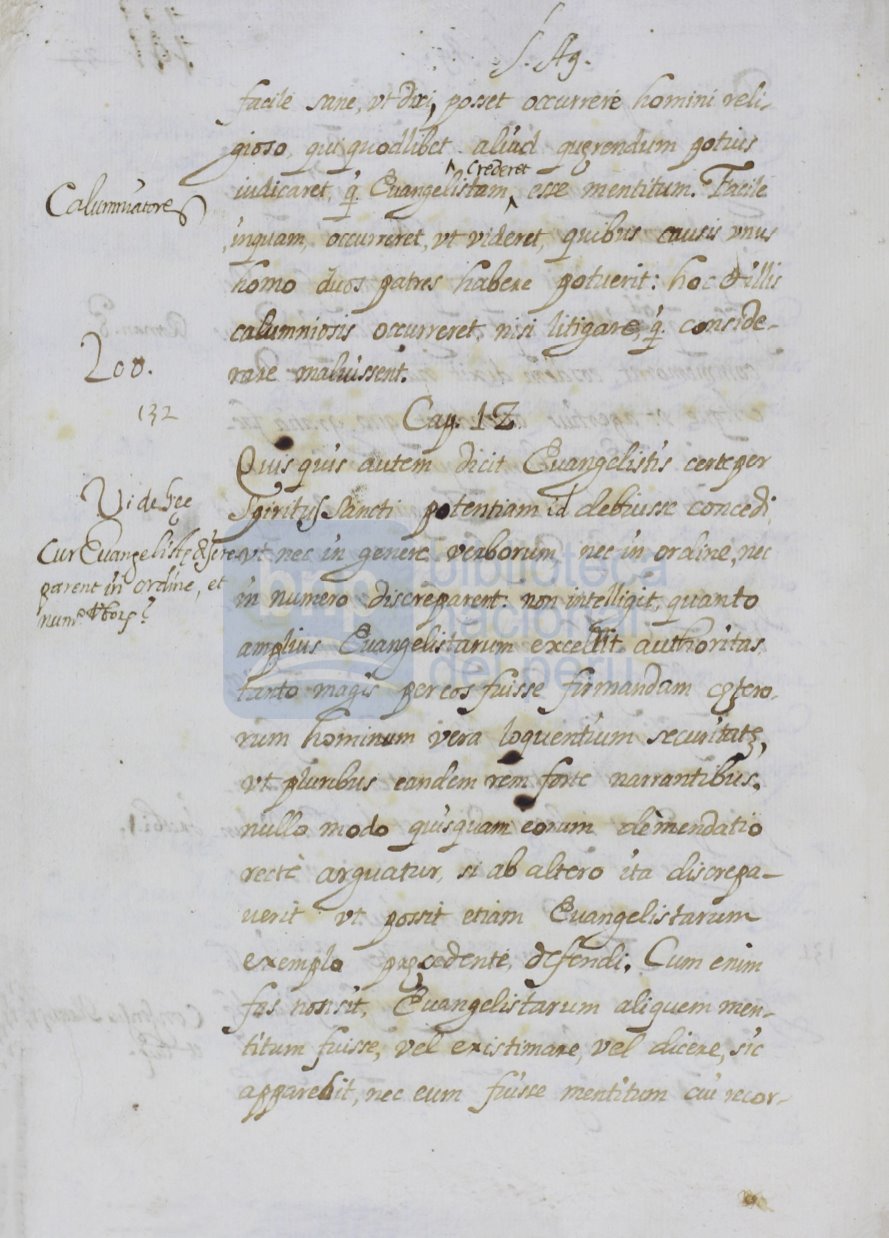 S. Ag.
facile sane, vt dixi, posset occurrere homini reli-
gioso, qui quodlibet aliud quęrendum potius
crederet
Calumniatores
iudicaret, q̃. Euangelistam esse mentitum. Facile
inquam, occurreret, vt videret, quibus causis vnus
homo duos patres habere potuerit: hoc & illis
calumniosis occurreret, nisi litigare, q̃. conside-
200.
rare maluissent.
132
Cap. 12
Quisquis autem dicit Euangelistis certe per
Vide hęc
Spiritus Sancti potentiam id debuisse concedi
Cur Euangelistę
vt nec in genere verborum, nec in ordine, nec
parent in ordine, et
in numero discreparent: non intelligit, quanto
amplius Euangelistarum excellit authoritas
tanto magis per eos fuisse firmandam cętero-
rum hominum vera loquentium securitatẽ,
vt pluribus eandem rem forte narrantibus,
nullo modo quisquam eorum de mendatio
rectè arguatur, si ab altero ita discrepa-
uerit vt possit etiam Euangelistarum
exemplo pręcedente, defendi. Cum enim
fas non sit, Euangelistarum aliquem men-
titum fuisse, vel existimare, vel dicere, sic
apparebit, nec eum fuisse mentitum cui recor-
bnp
biblioteca
nacional
del perú